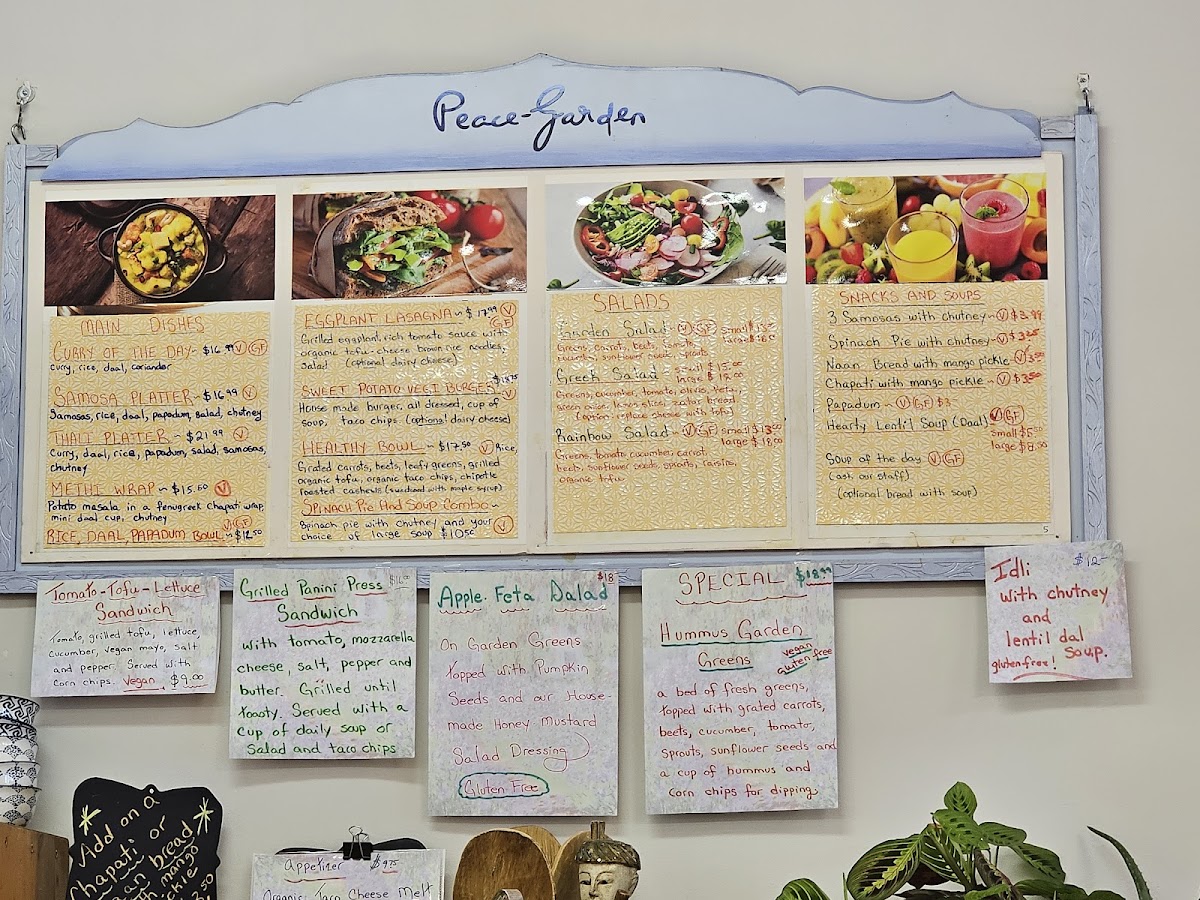 Peace-Garden
MAIN DISHES
CURRY OF THE DAY - $16.99 V GF
curry, rice, daal, coriander
SAMOSA PLATTER - $16.99 V
Samosas, rice, daal, papadum, salad, chutney
THALI PLATTER ~ $21.99 V
Curry, daal, rice, papadum, salad, samosas,
chutney
METHI WRAP ~ $15.50 V
Potato masala in a fenugreek chapati wrap,
mini daal cup, chutney
V GF
RICE, DAAL, PAPADUM BOWL ~ $12.50
EGGPLANT LASAGNA ~ $17.99 V
GF
Grilled eggplant, rich tomato sauce with
organic tofu-cheese, brown rice noodles,
salad (optional dairy cheese)
SWEET POTATO VEGI BURGER
V
House made burger, all dressed, cup of
soup, taco chips (optional dairy cheese)
HEALTHY BOWL ~ $17.50 V Rice,
Grated carrots, beets, leafy greens, grilled
organic tofu, organic taco chips, chipotle
roasted cashews (sweetened with maple syrup)
SPINACH Pie And Soup Combo ~
Spinach pie with chutney and your V
choice of large soup $10.50
SALADS
Garden Salad - V GF small
large
Greens, carrots, beets, tomato,
sunflower seeds, sprouts
Greek Salad - small $15.00
large $19.00
Greens, cucumber, tomato, olives, feta,
green onion
(option - replace cheese with tofu)
Rainbow Salad - V GF small $13.00
large $18.00
Greens, tomato, cucumber, carrot,
beets, sunflower seeds, sprouts, raisins,
organic tofu
SNACKS AND SOUPS
3 Samosas with chutney - V
Spinach Pie with chutney - V
Naan Bread with mango pickle V
Chapati with mango pickle - V $3.50
Papadum - V GF $3
Hearty Lentil Soup (Daal) V GF
small
large
Soup of the day V GF
(ask our staff)
(optional bread with soup)
5
Tomato-Tofu-Lettuce
Sandwich
Tomato, grilled tofu, lettuce,
cucumber, vegan mayo, salt
and pepper. Served with
corn chips. Vegan $9.00
Grilled Panini Press
Sandwich
with tomato, mozzarella
cheese, salt, pepper and
butter. Grilled until
toasty. Served with a
cup of daily soup or
Salad and taco chips
$18
Apple-Feta Salad
On Garden Greens
topped with Pumpkin
Seeds and our House-
made Honey Mustard
Salad Dressing
Gluten Free
SPECIAL $18.99
Hummus Garden
Greens vegan
gluten free
a bed of fresh greens,
topped with grated carrots,
beets, cucumber, tomato,
sprouts, sunflower seeds and
a cup of hummus and
corn chips for dipping
Idli $12-
with chutney
and
lentil dal
gluten free! Soup.
Add on a
Chapati or
bread
mango
Appetizer $9.75
Organic Taco Cheese Melt